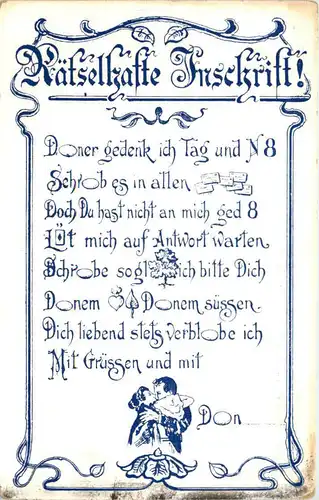 Rätselhafte Inschrift!
Doner gedenk ich Tag und N8
Schrob es in allen
Doch Du hast nicht an mich ged8
L t mich auf Antwort warten
Schrobe sogl ich bitte Dich
Donem Donem süssen
Dich liebend stets verblobe ich
Mit Grüssen und mit
Don